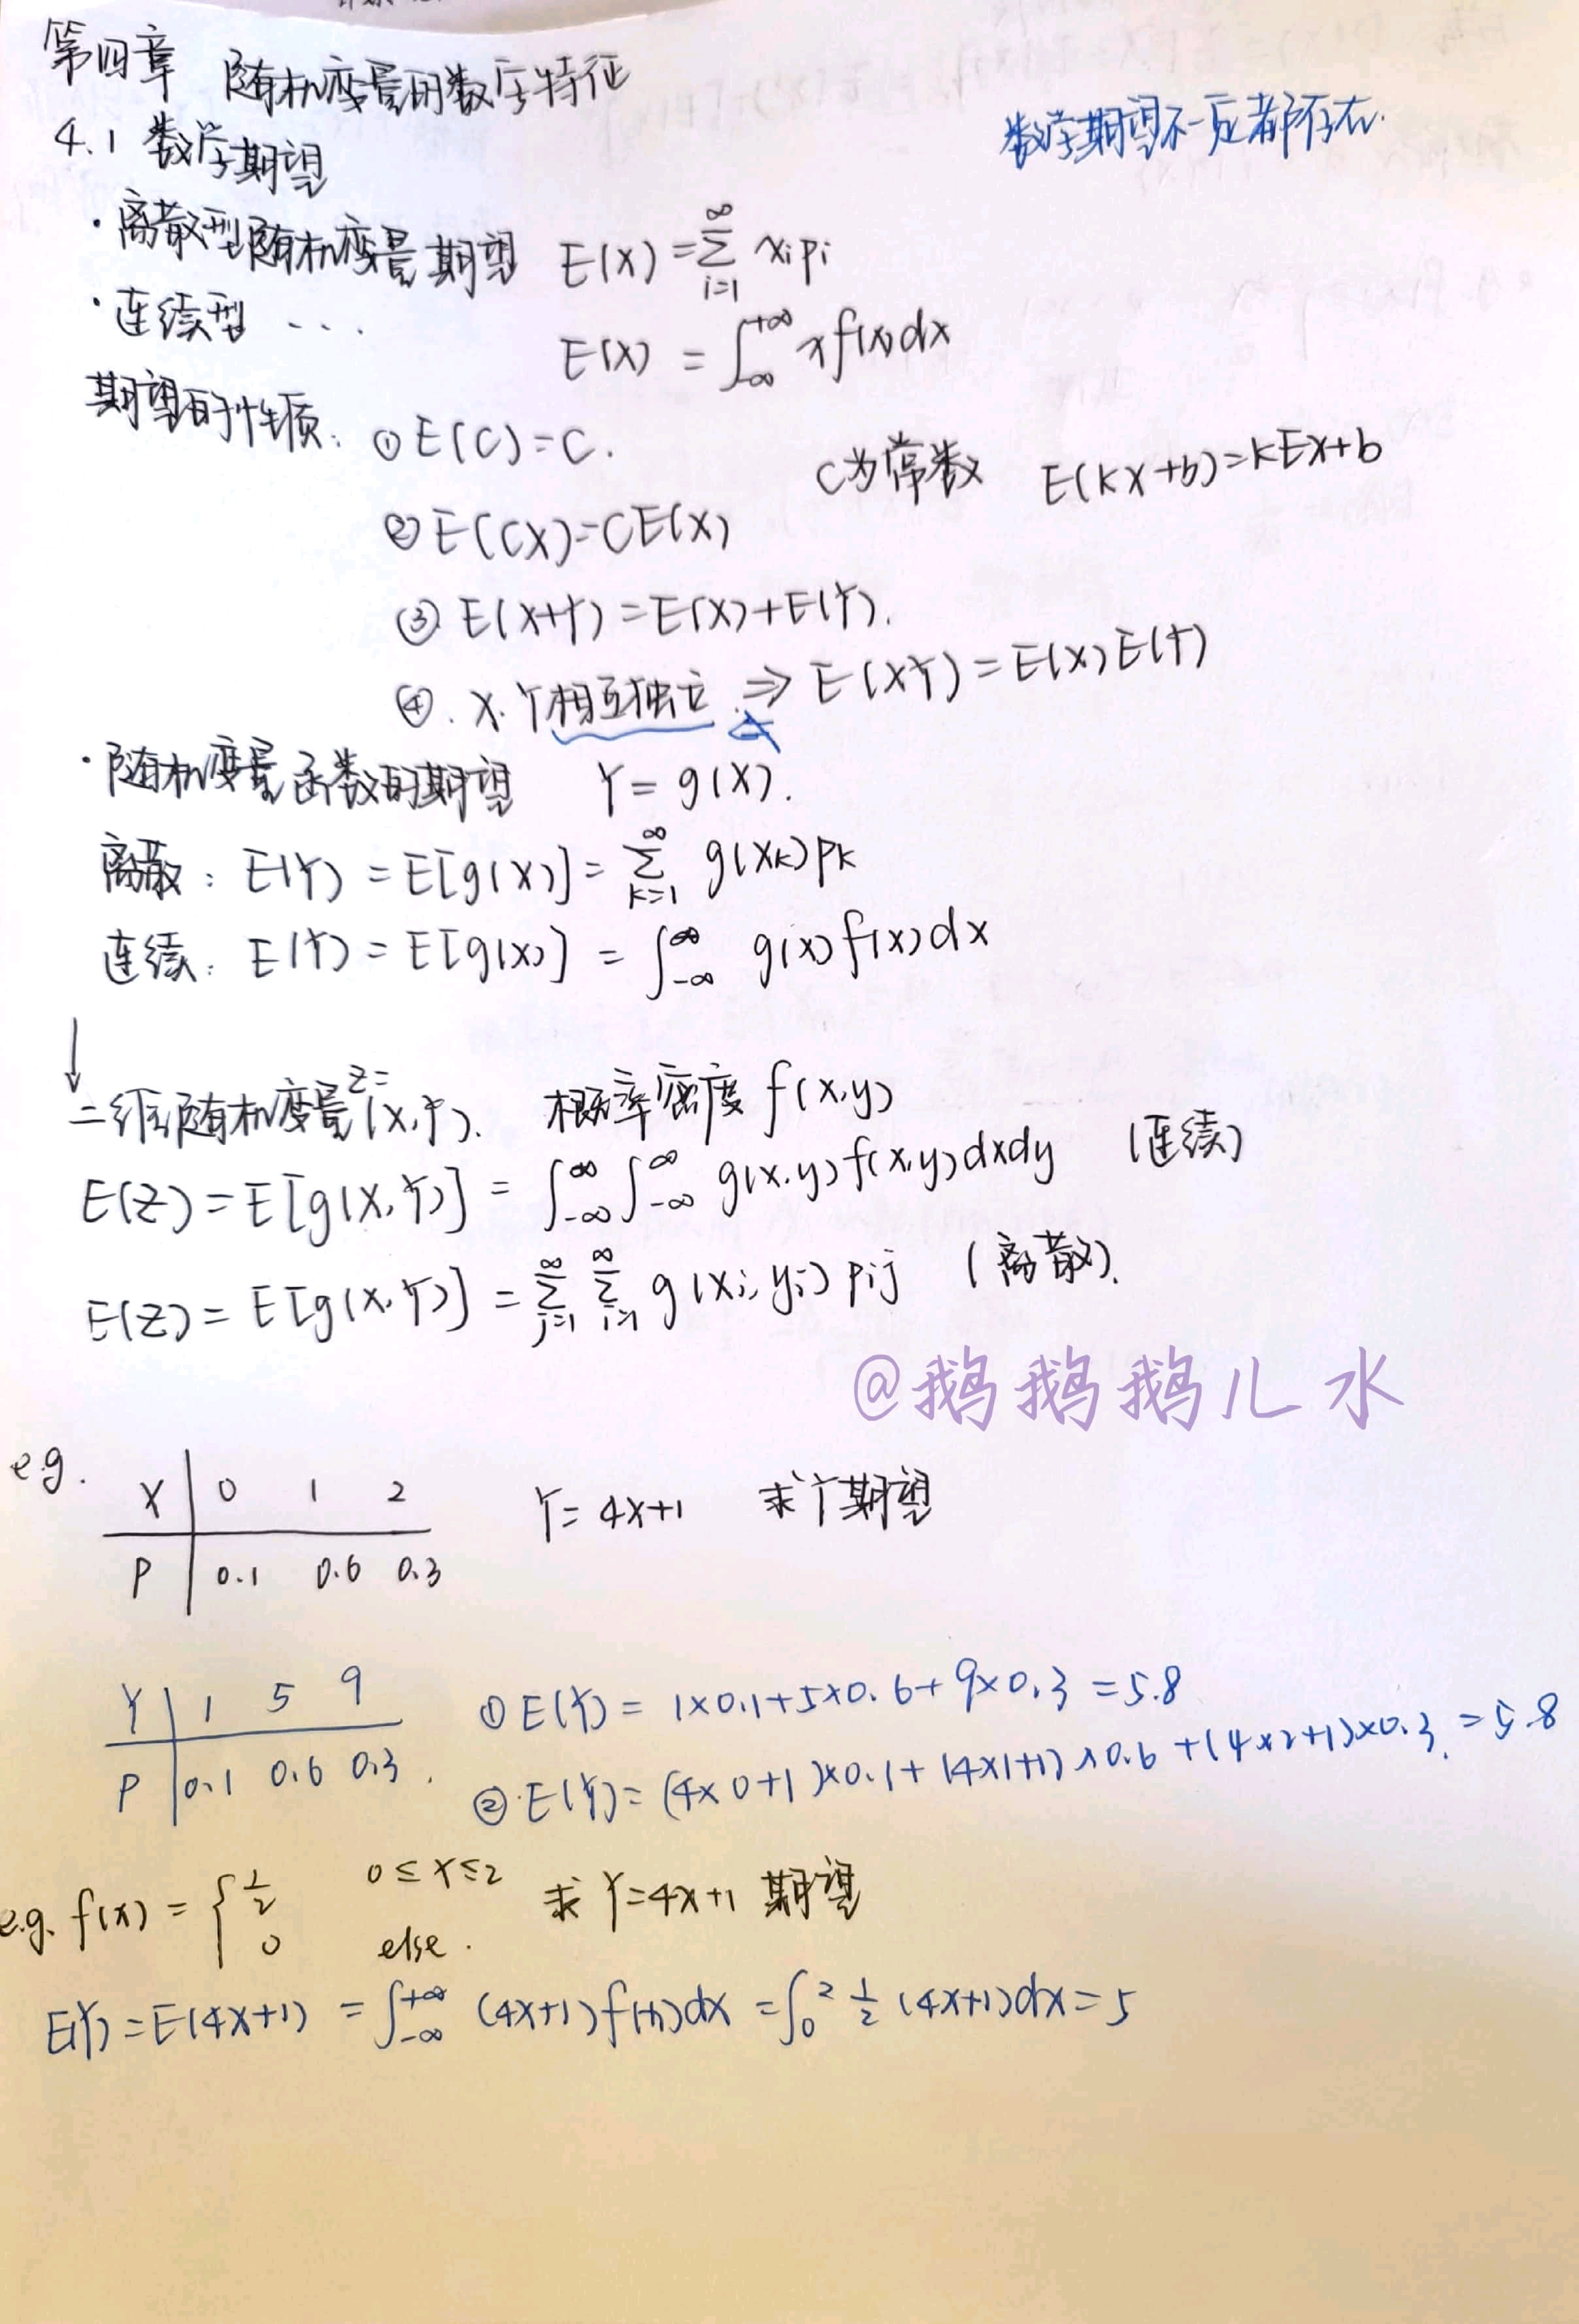 第四章 随机变量的数字特征
数学期望不一定都存在.
4.1 数学期望
·离散型随机变量期望 E(X)=∑_{i=1}^{∞} xipi
·连续型 ... E(X) = ∫_{-∞}^{+∞} xf(x)dx
期望的性质: ①E(C)=C. C为常数 E(kX+b)=kEX+b
②E(CX)=CE(X)
③ E(X+Y)=E(X)+E(Y).
④. X.Y相互独立 ⇒ E(XY)=E(X)E(Y)
·随机变量函数的期望 Y=g(X).
离散: E(Y)=E[g(X)]=∑_{k=1}^{∞} g(xk)pk
连续: E(Y)=E[g(X)] = ∫_{-∞}^{∞} g(x)f(x)dx
↓
二维随机变量 Z=(X,Y). 概率密度 f(x,y)
E(Z)=E[g(X,Y)] = ∫_{-∞}^{∞}∫_{-∞}^{∞} g(x,y)f(x,y)dxdy (连续)
E(Z)=E[g(X,Y)] = ∑_{j=1}^{∞} ∑_{i=1}^{∞} g(xi,yj)pij (离散).
@鹅鹅鹅儿水
e.g. X 0 1 2 Y=4X+1 求Y期望
P 0.1 0.6 0.3
Y 1 5 9 ①E(Y)=1×0.1+5×0.6+9×0.3=5.8
P 0.1 0.6 0.3. ②E(Y)=(4×0+1)×0.1+(4×1+1)×0.6+(4×2+1)×0.3.=5.8
e.g. f(x)={ 1/2 0≤x≤2 求Y=4X+1期望
0 else.
E(Y)=E(4X+1) = ∫_{-∞}^{+∞} (4x+1)f(x)dx=∫_{0}^{2} 1/2 (4x+1)dx=5